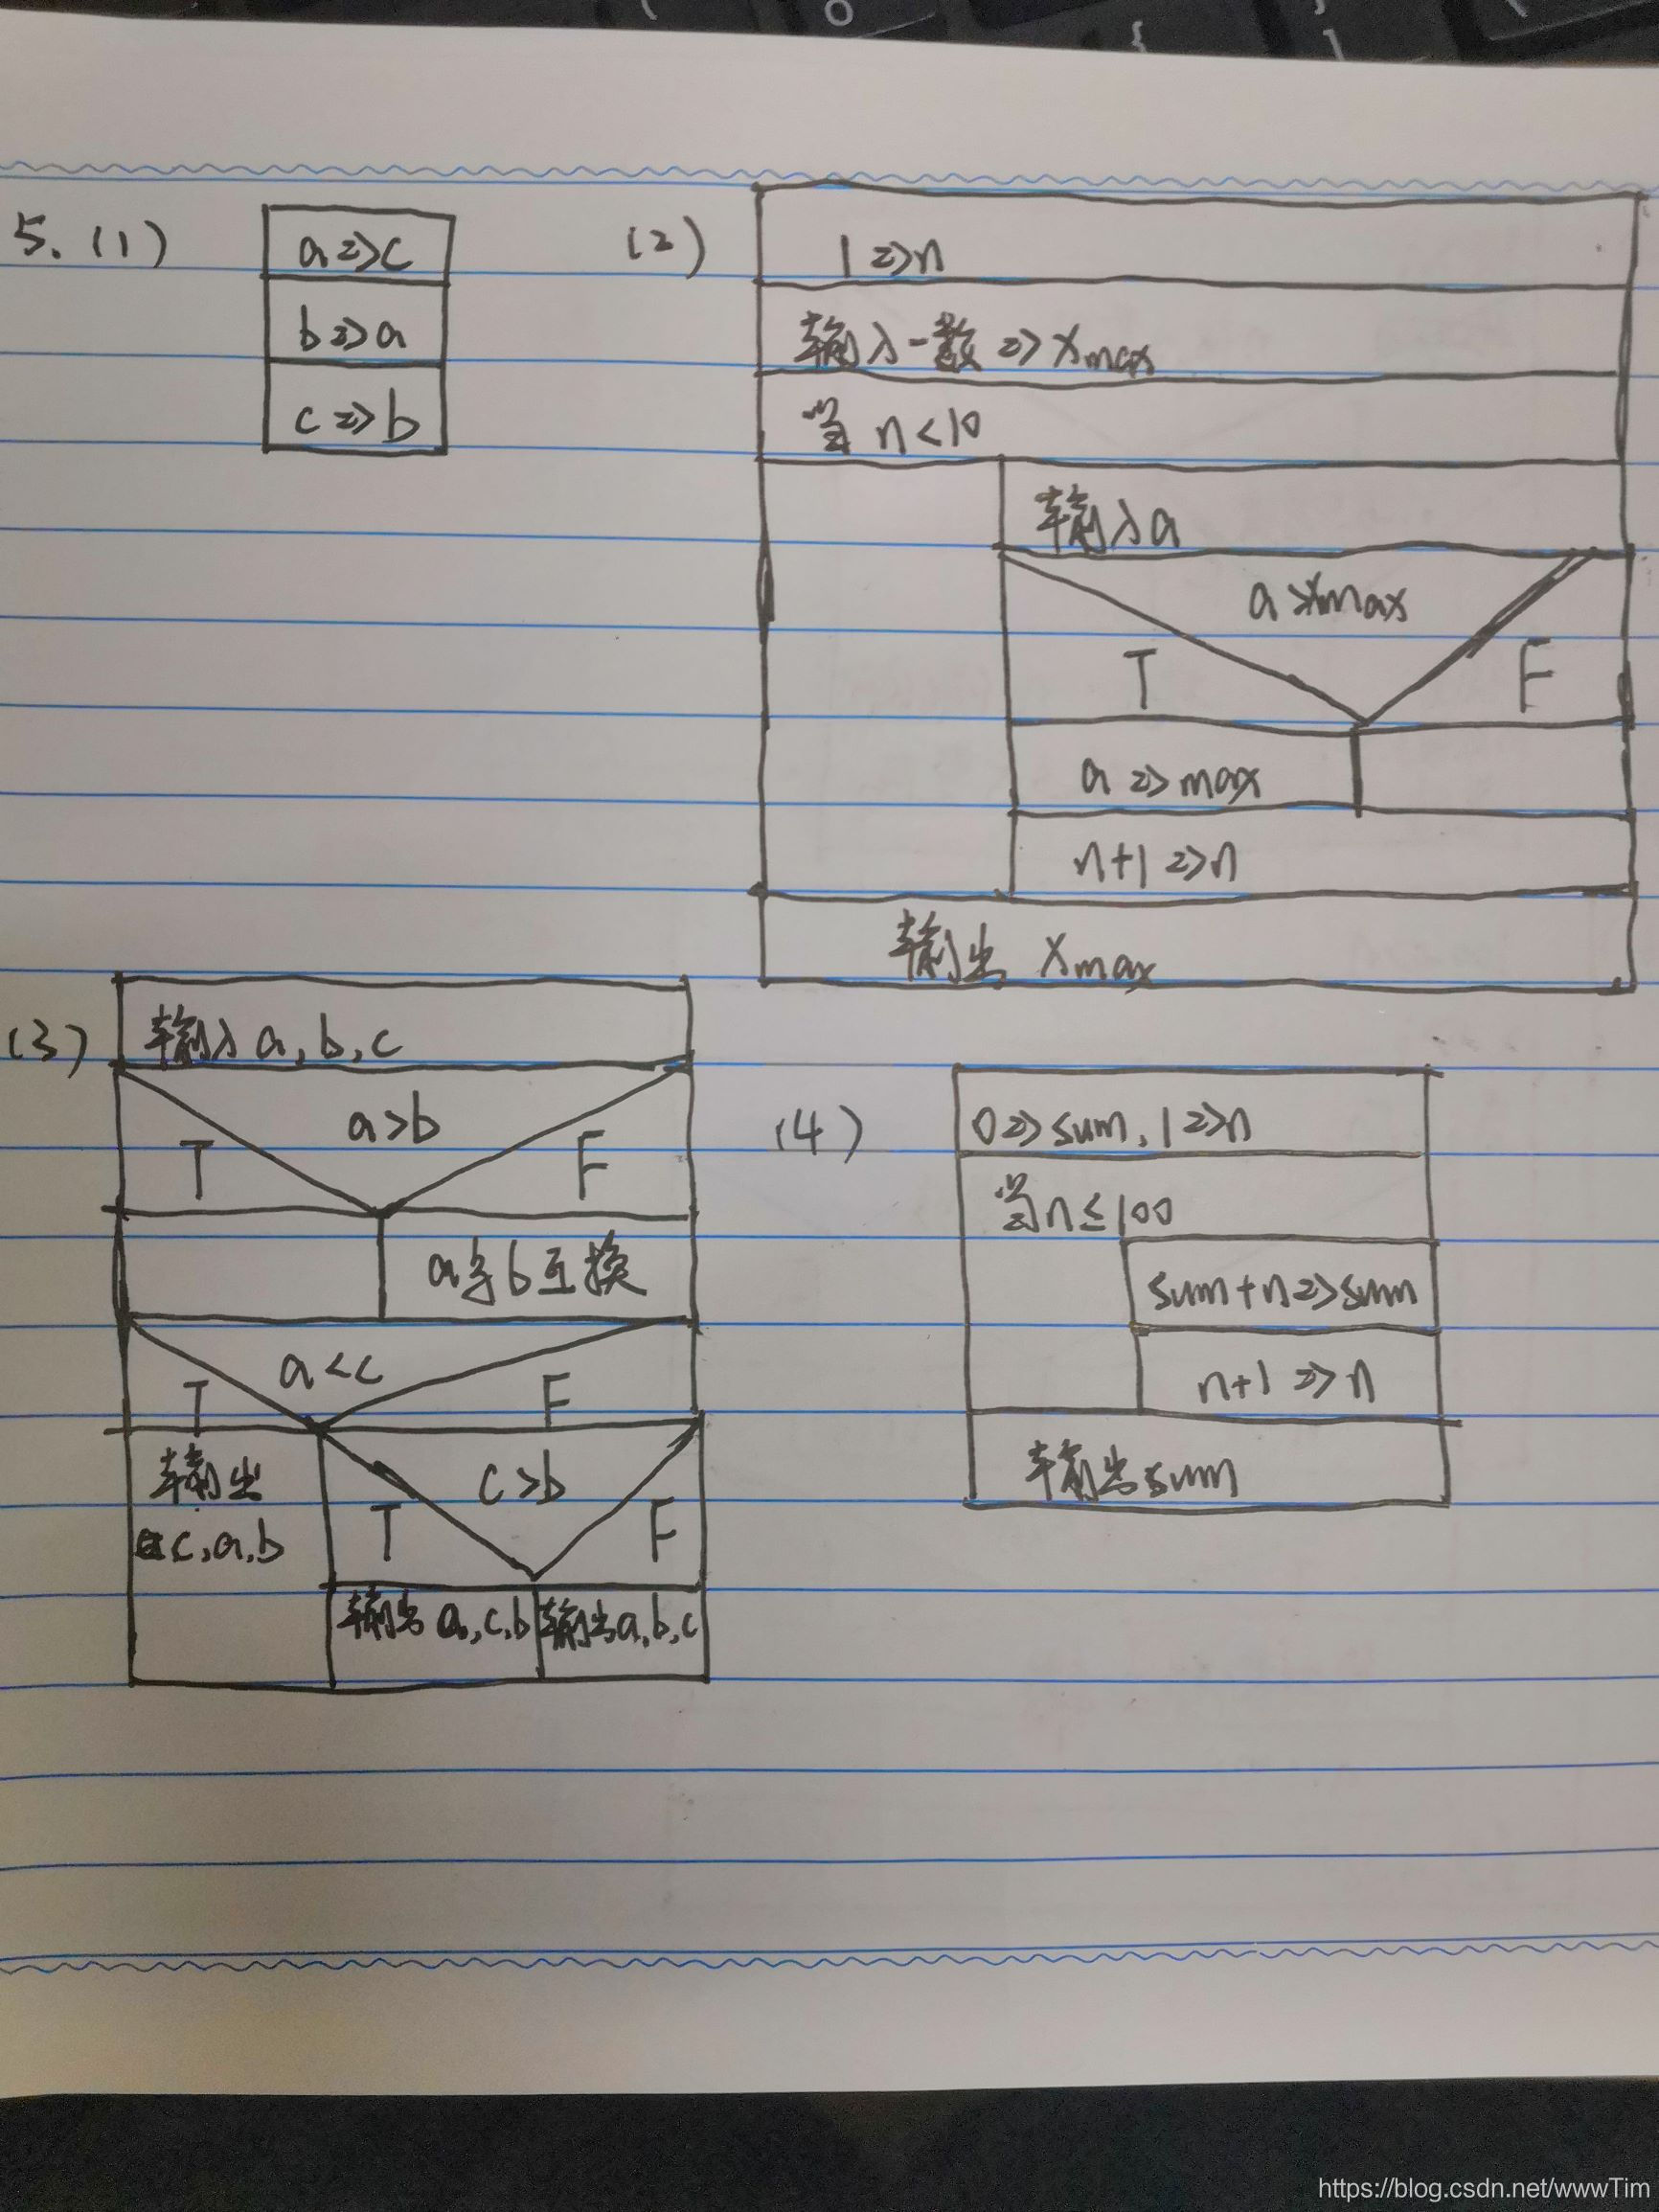 5. (1)
a⇒c
b⇒a
c⇒b
(2)
1⇒n
输入一数⇒xmax
当 n<10
输入a
a>xmax
T
F
a⇒max
n+1⇒n
输出 xmax
(3)
输入a,b,c
a>b
T
F
a与b互换
a<c
T
F
输出
c,a,b
c>b
T
F
输出a,c,b
输出a,b,c
(4)
0⇒sum,1⇒n
当n≤100
sum+n⇒sum
n+1⇒n
输出sum
https://blog.csdn.net/wwwTim